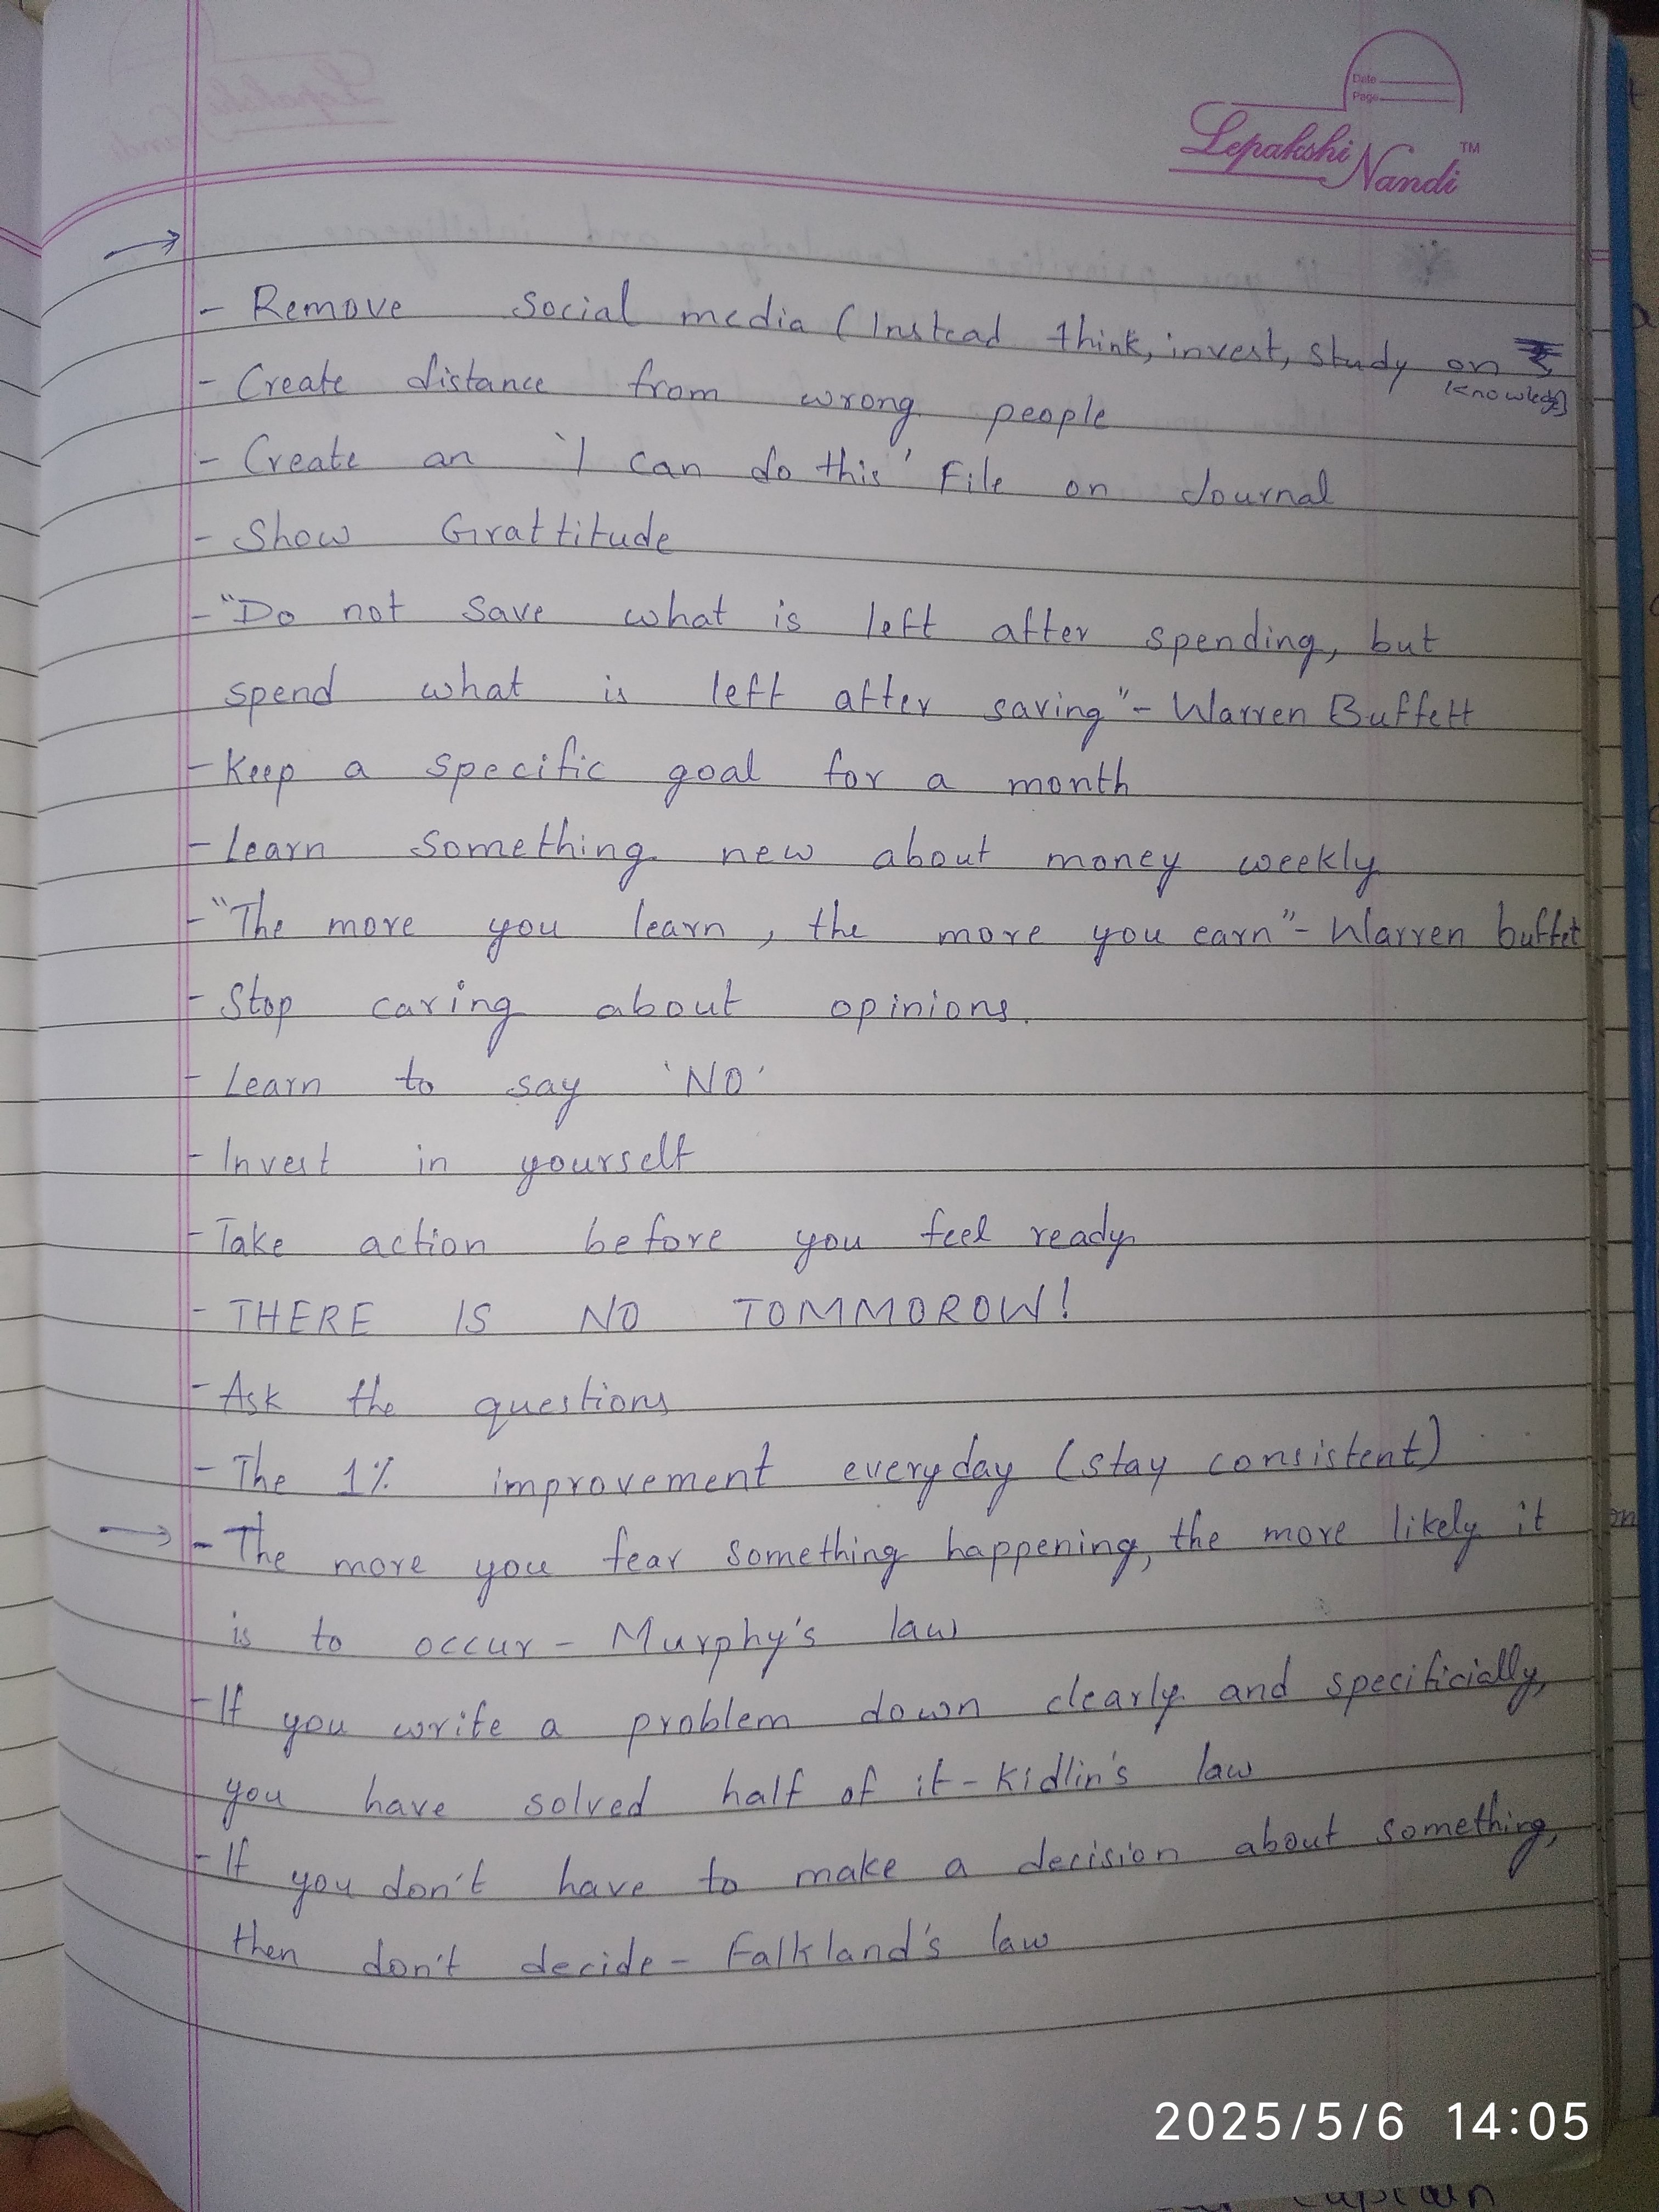 Date
Page
Lepakshi Nandi TM
→
- Remove social media (Instead think, invest, study on
knowledge)
- Create distance from wrong people
- Create an 'I can do this' File on Journal
- Show Grattitude
- "Do not save what is left after spending, but
spend what is left after saving" - Warren Buffett
- Keep a specific goal for a month
- Learn something new about money weekly
- "The more you learn, the more you earn" - Warren buffet
- Stop caring about opinions.
- Learn to say 'NO'
- Invest in yourself
- Take action before you feel ready
- THERE IS NO TOMMOROW!
- Ask the questions
- The 1% improvement everyday (stay consistent)
→ - The more you fear something happening, the more likely it
is to occur - Murphy's law
- If you write a problem down clearly and specificially,
you have solved half of it - Kidlin's law
- If you don't have to make a decision about something,
then don't decide - Falkland's law
2025/5/6 14:05